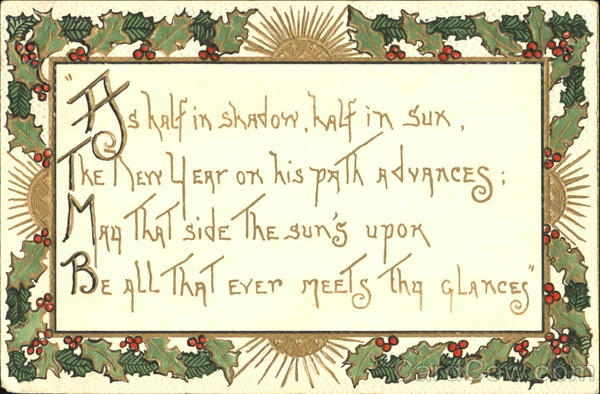 "As half in shadow, half in sun,
The New Year on his path advances;
May that side the sun's upon
Be all that ever meets thy glances"
CardCow.com